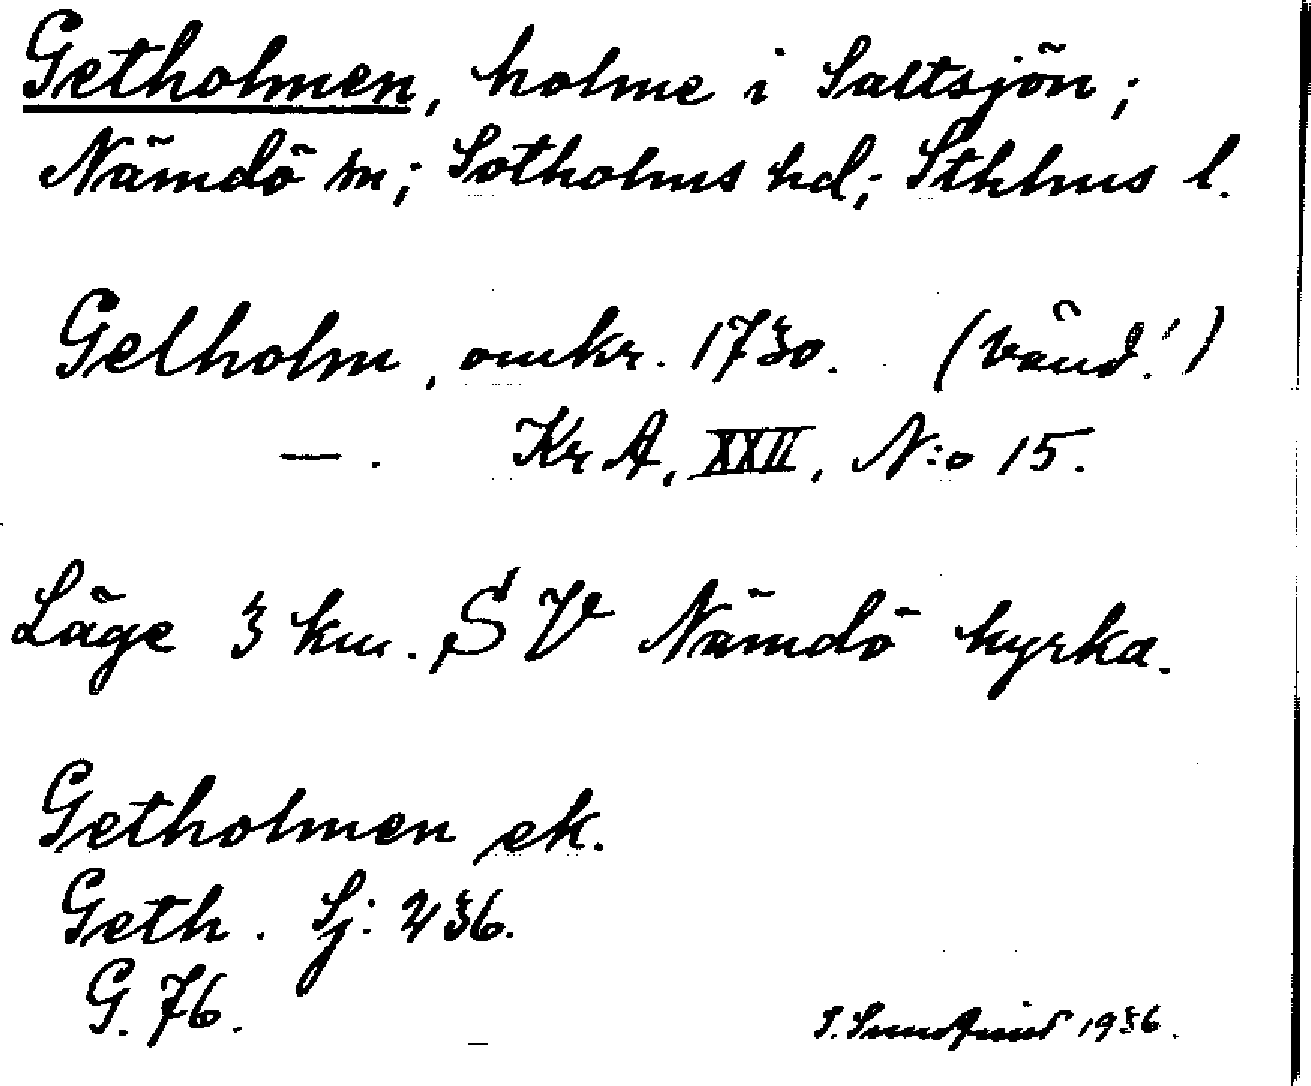 Getholmen, holme i Saltsjön;
Nämdö sn; Sotholms hd; Sthlms l.
Getholm, omkr. 1730. (vänd!)
—. KrA, XXII, N:o 15.
Läge 3 km. SV Nämdö kyrka.
Getholmen ek.
Geth. Sj: 236.
G. 76.
1936.